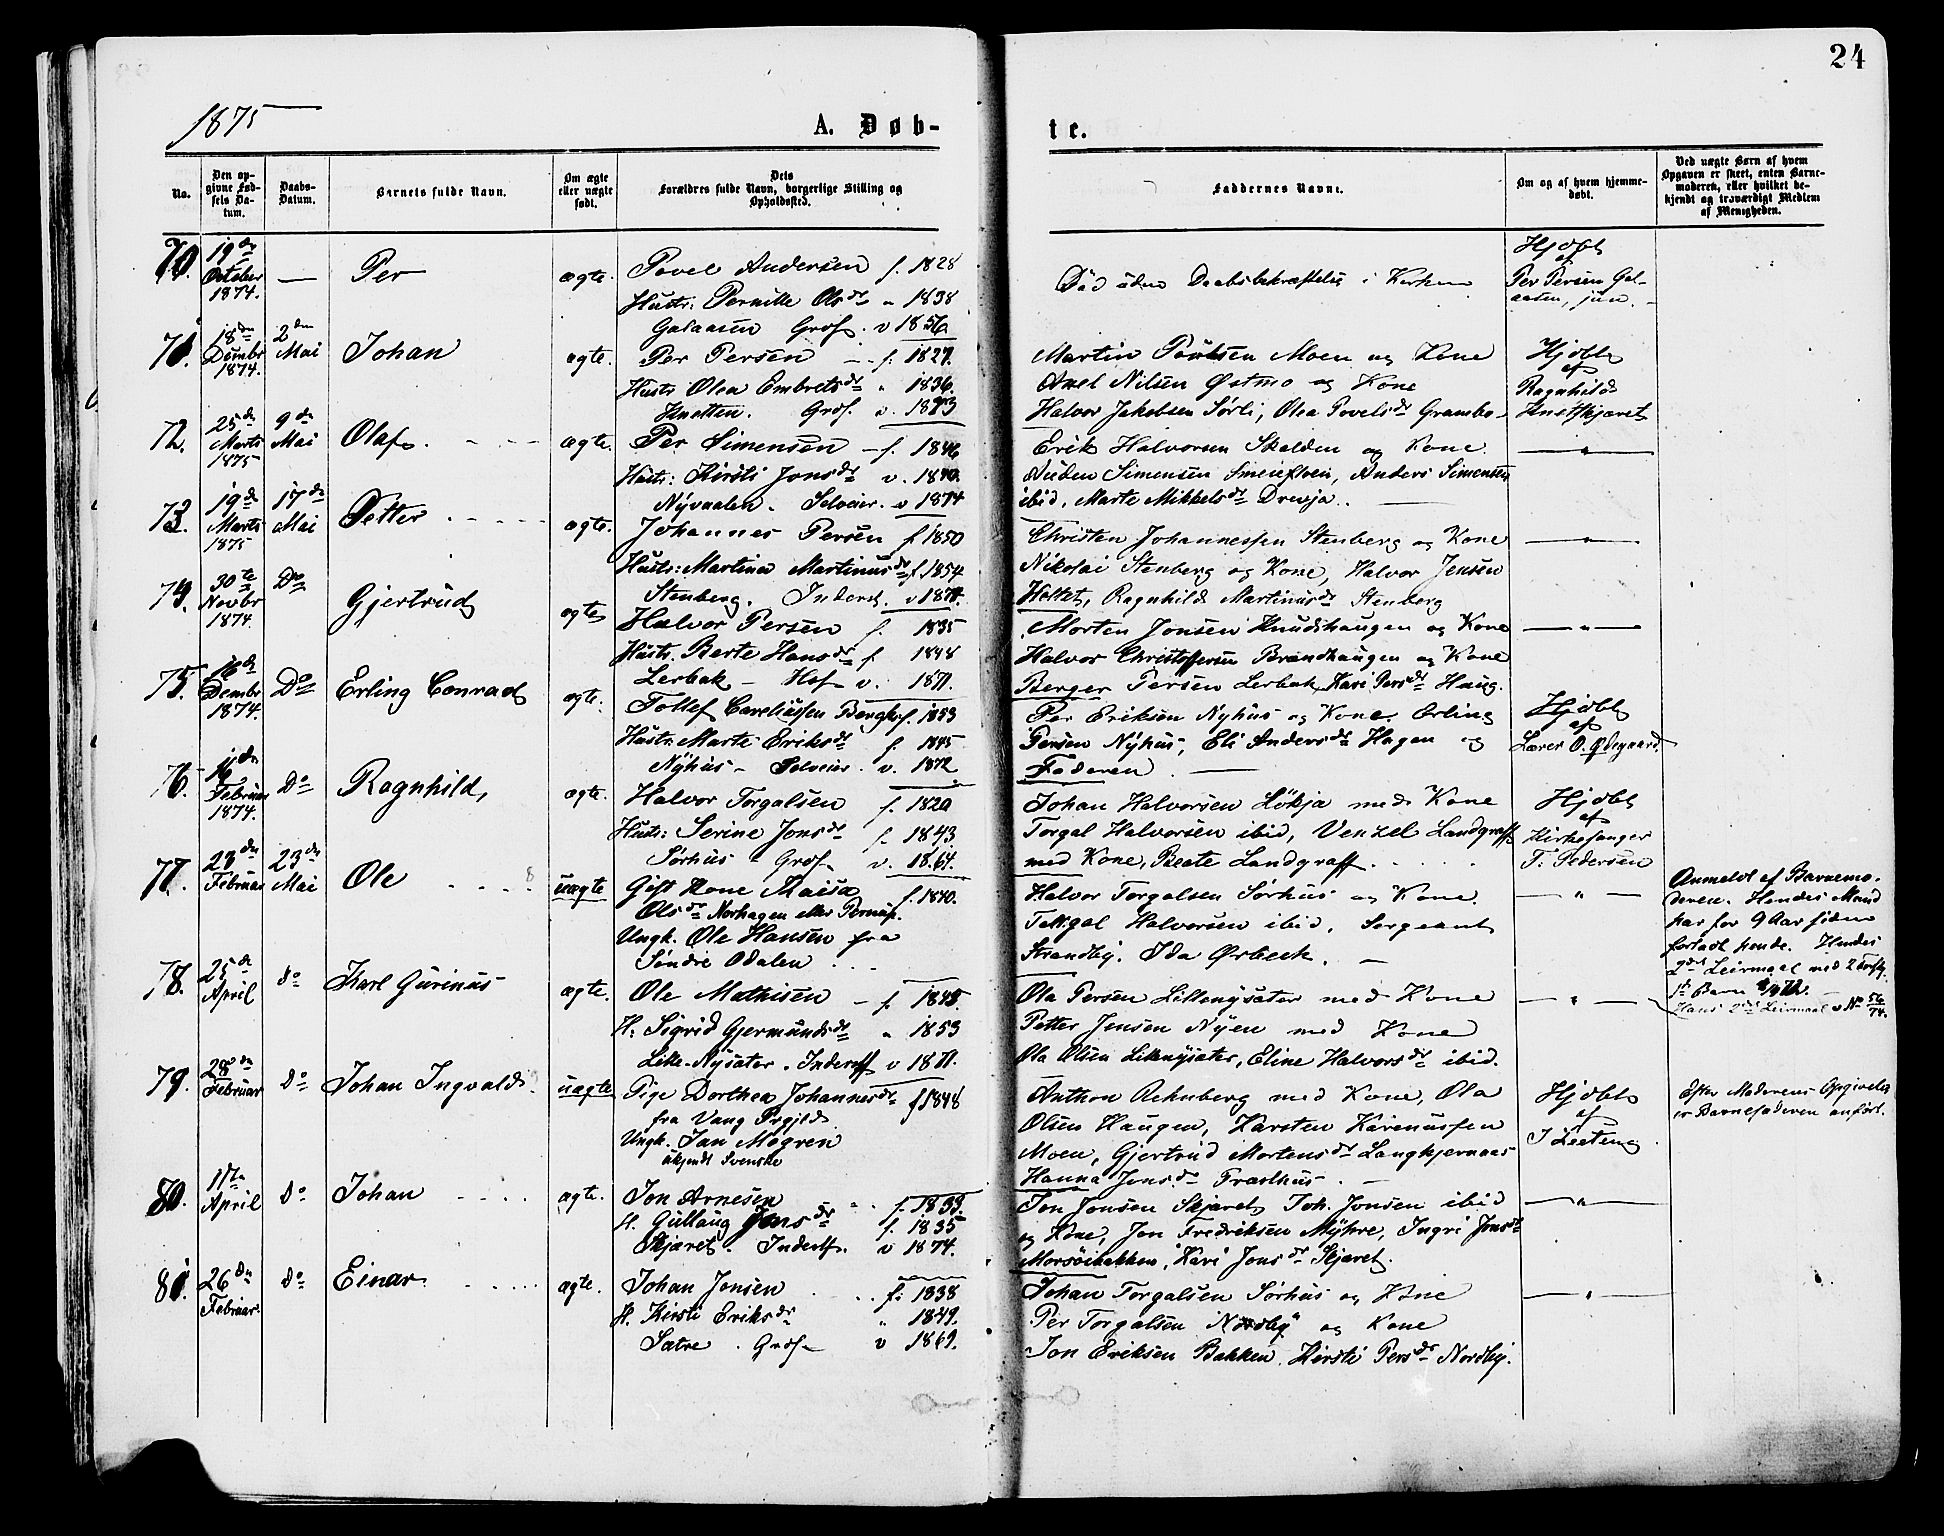 24
1875
A. Døb-
te.
No.
Den op-
givne Fød-
sels Da-
tum.
Daabs-
Datum.
Barnets fulde Navn.
Om ægte
eller uægte
født.
Dets
Forældres fulde Navn, borgerlige Stilling og
Opholdssted.
Faddernes Navne.
Om og af hvem hjemme-
døbt.
Ved uægte Børn af hvem
Opgaven er skeet, enten Barne-
moderen, eller hvilket be-
kjendt og troværdigt Medlem
af Menigheden.
70.
19de
October
1874.
—
Per
ægte.
Povel Andersen f. 1828
Hustr: Pernille Olsdr " 1838
Galaasen Grdf. v 1856
Død uden Daabsbekræftelse i Kirken
Hjdbt
af
Per Persen Gal-
aasen, jun.
71.
18de
Dcmbr
1874.
2den
Mai
Johan
ægte.
Per Persen f. 1827.
Hustr Olea Embretsdr " 1836.
Knatten. Grdf. v. 1873
Martin Paulsen Moen og Kone
Axel Nilsen Østmo og Kone
Halvor Jakobsen Sørli, Olea Povelsdr Grambo
Hjdbt
af
Ragnhild
Knatskjæret
72.
25de
Marts
1875
9de
Mai
Olaf.
ægte.
Per Simensen f. 1846
Hustr: Kirsti Jonsdr v. 1840.
Nyvaalen. Selveier. v 1874
Erik Halvorsen Skolden og Kone.
Auden Simensen Smeiestuen, Anders Simensen
ibid, Marte Mikkelsdr Drevja.
— " —
73.
19de
Marts
1875
17de
Mai
Petter
ægte.
Johannes Persen f 1850
Hustr: Martina Martinusdr f. 1854
Stenberg. Inderst. v 1874.
Christen Johannessen Stenberg og Kone
Nikolai Stenberg og Kone, Halvor Jensen
Holtet, Ragnhild Martinusdr Stenberg
— " —
74.
30te
Novbr
1874.
Do
Gjertrud
ægte
Halvor Persen f. 1835
Hustr. Berte Hansdr f 1848
Lerbak — Hof v. 1871.
Morten Jonsen Knudshaugen og Kone
Halvor Christoffersen Brandhaugen og Kone
Berger Persen Lerbak, Kari Persdr Haug.
— " —
75.
16de
Dembr
1874.
Do
Erling Conrad
ægte.
Tollef Careliussen Bergh f. 1853
Hustr: Marte Eriksdr f. 1845
Nyhus — Selveier. v. 1872
Per Eriksen Nyhus og Kone. Erling
Persen Nyhus, Eli Andersdr Hagen og
Faderen. —
Hjdbt
af
Lærer O. Ødegaard
76.
Februar
1874.
Do
Ragnhild,
ægte.
Halvor Torgalsen f. 1820
Hustr: Serine Jonsdr f. 1843.
Sørhus — Grdf v. 1864.
Johan Halvorsen Løkja med Kone
Torgal Halvorsen ibid, Venzel Landgraff
med Kone, Beate Landgraff.
Hjdbt
af
Kirkesanger
T. Pedersen
77.
23de
Februar
23de
Mai
Ole
uægte
Gift Kone Maisa f. 1840.
Olsdr Norhagen eller Pernup.
Ungk. Ole Hansen fra
Søndre Odalen
Halvor Torgalsen Sørhus og Kone.
Torgal Halvorsen ibid, Sergeant
Strandby. Ida Ørbeck. —
— " —
Anmeldt af Barnemo-
deren. Hendes Mand
har for 9 Aar siden
forladt hende. Hendes
2det Leirmaal med 2 Forskj.
1ste Barn 1872.
Hans 2det Leirmaal v No 56/74.
78.
25de
April
do
Karl Gurinus
ægte.
Ole Mathisen f. 1848.
H. Sigrid Gjermundsdr " 1853
Lille-Nysæter. Inderst v 1871.
Ola Persen Lillenysæter med Kone
Petter Jensen Nyen med Kone
Ola Olsen Lillenysæter, Eline Halvorsdr ibid.
— " —
79.
28de
Februar
Do
Johan Ingvald
uægte
Pige Dorthea Johannesdr f 1848
fra Vang Prgjld
Ungk. Jan Mogren
ukjendt Svenske
Anthon Rehnberg med Kone, Ola
Olsen Haugen, Karsten Karenussen
Moen, Gjertrud Mortensdr Langkjernaas
Hanna Jonsdr Fræsthus.
Hjdbt
af
I Leeteng
Efter Moderens Opgivelse
er Barnefaderen anført.
80.
17de
April
Do
Johan
ægte.
Jon Arnesen f. 1833.
H. Gullaug Jonsdr f. 1835
Skjæret. Inderst. v 1874.
Jon Jonsen Skjæret, Joh. Jonsen ibid
og Kone, Jon Fredriksen Myhre, Ingri Jonsdr
Morsøibakken, Kari Jonsdr Skjæret.
— " —
81.
26de
Februar.
do
Einar
ægte.
Johan Jonsen f. 1838
H. Kirsti Eriksdr " 1849.
Sætre. Grdf v 1869.
Johan Torgalsen Sørhus og Kone
Per Torgalsen Nordby og Kone
Jon Eriksen Bakken. Kirsti Persdr Nordby.
— " —